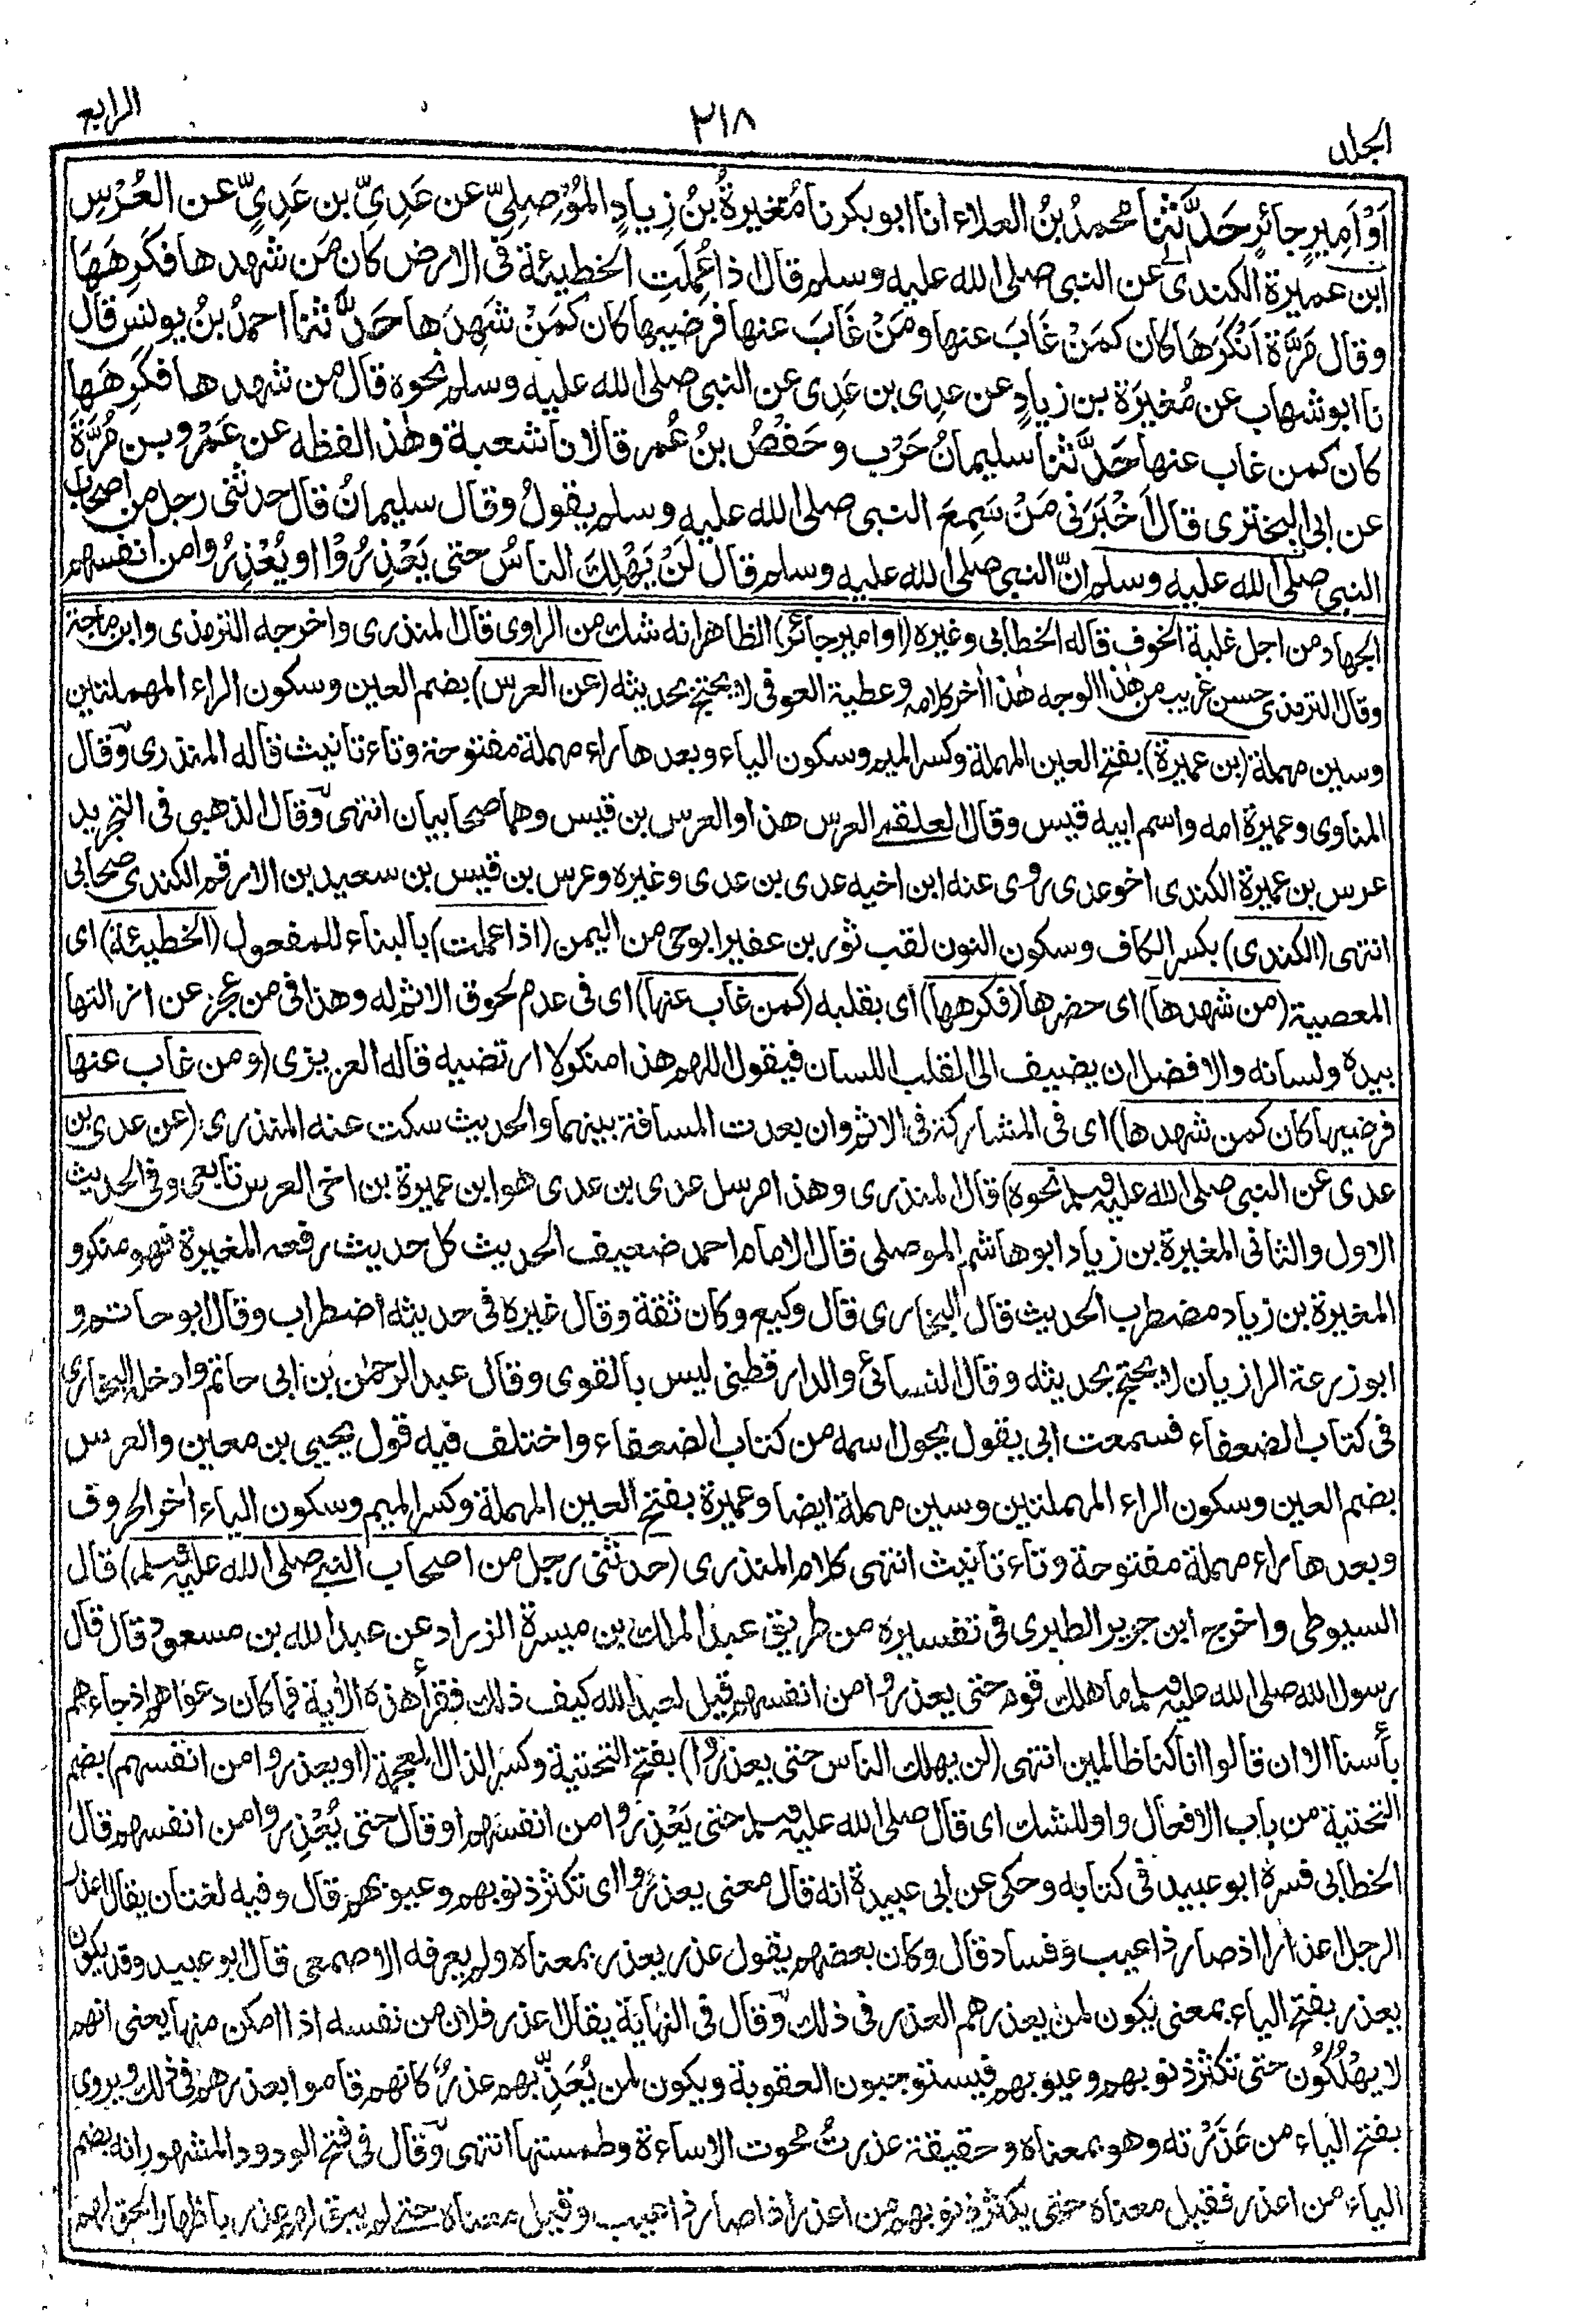 الرابع
٢١٨
الجلد
اَوْ اَمِيرٍ جائرٍ حَدَّثَنَا محمدُ بنُ العلاء انا ابو بكر نا مُغيرةُ بنُ زِيادٍ المُؤَصِلِيّ عن عَدِيّ بن عَدِيٍّ عن العُرْسِ
ابن عميرة الكندى عن النبى صلى الله عليه وسلم قال اذا عُمِلَتِ الخطيئة فى الارض كان مَن شهدها فكَرِهَهَا
وقال مَرَّةً اَنْكَرَهَا كان كمَنْ غَابَ عنها ومَنْ غَابَ عنها فرضيها كان كمَنْ شَهِدَها حَدَّثنا احمدُ بنُ يونس قال
نا ابو شهاب عن مُغِيَرَة بن زيادٍ عن عدِى بن عَدِى عن النبى صلى الله عليه وسلم نحوه قال من شهدها فكَرِهَها
كان كمن غاب عنها حَدَّثنا سليمانُ حَرْب وحَفْصُ بنُ عُمر قالا نا شعبة وهٰذا لفظه عن عَمْرو بن مُرَّةَ
عن ابى البخترى قال اَخْبَرَنى مَنْ سَمِعَ النبى صلى الله عليه وسلم يقولُ وقال سليمانُ قال حدثنى رجل من اصحاب
النبى صلى الله عليه وسلم انّ النبى صلى الله عليه وسلم قال لَنْ يَهْلِكَ الناسُ حتى يَعْذِرُوْا او يُعْذِرُوا من انفسهم
الجهاد من اجل غلبة الخوف قاله الخطابى وغيره (او امير جائر) الظاهر انه شك من الراوى قال المنذرى واخرجه الترمذى وابن ماجة
وقال الترمذى حسن غريب من هٰذا الوجه هٰذا اٰخر كلامه وعطية العوفى لا يحتج بحديثه (عن العرس) بضم العين وسكون الراء المهملتين
وسين مهملة (بن عميرة) بفتح العين المهملة وكسر الميم وسكون الياء وبعدها راء مهملة مفتوحة وتاء تانيث قاله المنذرى وقال
المناوى وعميرة امه واسم ابيه قيس وقال العلقمى العرس هذا والعرس بن قيس وهما صحابيان انتهى وقال الذهبى فى التجريد
عرس بن عميرة الكندى اخو عدى روى عنه ابن اخيه عدى بن عدى وغيره وعرس بن قيس بن سعيد بن الارقم الكندى صحابى
انتهى (الكندى) بكسر الكاف وسكون النون لقب ثور بن عفير ابو حى من اليمن (اذا عملت) بالبناء للمفعول (الخطيئة) اى
المعصية (من شهدها) اى حضرها (فكرهها) اى بقلبه (كمن غاب عنها) اى فى عدم لحوق الاثم له وهذا فى من عجز عن ازالتها
بيده ولسانه والافضل ان يضيف الى القلب اللسان فيقول اللهم هذا منكر لا ارتضيه قاله العزيزى (ومن غاب عنها
فرضيها كان كمن شهدها) اى فى المشاركة فى الاثم وان بعدت المسافة بينهما والحديث سكت عنه المنذرى (عن عدى بن
عدى عن النبى صلى الله عليه وسلم نحوه) قال المنذرى وهذا مرسل عدى بن عدى هو ابن عميرة بن اخى العرس تابعى وفى الحديث
الاول والثانى المغيرة بن زياد ابو هاشم الموصلى قال الامام احمد ضعيف الحديث كل حديث رفعه المغيرة فهو منكر و
المغيرة بن زياد مضطرب الحديث قال البخارى قال وكيع وكان ثقة وقال غيره فى حديثه اضطراب وقال ابو حاتم و
ابو زرعة الرازيان لا يحتج بحديثه وقال النسائى والدارقطنى ليس بالقوى وقال عبد الرحمٰن بن ابى حاتم وادخله البخارى
فى كتاب الضعفاء فسمعت ابى يقول يحول اسمه من كتاب الضعفاء واختلف فيه قول يحيى بن معين والعرس
بضم العين وسكون الراء المهملتين وسين مهملة ايضا وعميرة بفتح العين المهملة وكسر الميم وسكون الياء اٰخر الحروف
وبعدها راء مهملة مفتوحة وتاء تانيث انتهى كلام المنذرى (حدثنى رجل من اصحاب النبى صلى الله عليه وسلم) قال
السيوطى واخرج ابن جرير الطبرى فى تفسيره من طريق عبد الملك بن ميسرة الزراد عن عبد الله بن مسعود قال قال
رسول الله صلى الله عليه وسلم ما هلك قوم حتى يعذروا من انفسهم قيل لعبد الله كيف ذلك فقرأ هذه الاٰية فما كان دعواهم اذ جاءهم
بأسنا الا ان قالوا انا كنا ظالمين انتهى (لن يهلك الناس حتى يعذروا) بفتح التحتية وكسر الذال المعجمة (او يعذروا من انفسهم) بضم
التحتية من باب الافعال واو للشك اى قال صلى الله عليه وسلم حتى يَعْذِرُوا من انفسهم او قال حتى يُعْذِروا من انفسهم قال
الخطابى فسره ابو عبيد فى كتابه وحكى عن ابى عبيدة انه قال معنى يعذروا اى تكثر ذنوبهم وعيوبهم قال وفيه لغتان يقال اعذر
الرجل اعذارا اذ صار ذا عيب وفساد قال وكان بعضهم يقول عذر يعذر بمعناه ولم يعرفه الاصمعى قال ابو عبيد وقد يكون
يعذر بفتح الياء بمعنى يكون لمن يعذرهم العذر فى ذلك وقال فى النهاية يقال اعذر فلان من نفسه اذا امكن منها يعنى انهم
لا يهْلكُون حتى تكثر ذنوبهم وعيوبهم فيستوجبون العقوبة ويكون لمن يُعَذِّبهم عذرٌ كانهم قاموا بعذرهم فى ذلك ويروى
بفتح الياء من عَذَرْته وهو بمعناه وحقيقة عذرتُ محوت الاساءة وطمستها انتهى وقال فى فتح الودود المشهور انه بضم
الياء من اعذر فقيل معناه حتى يكثر ذنوبهم من اعذر اذا صار ذا عيب وقيل معناه حتى لم يبق لهم عذر باظهار الحق لهم